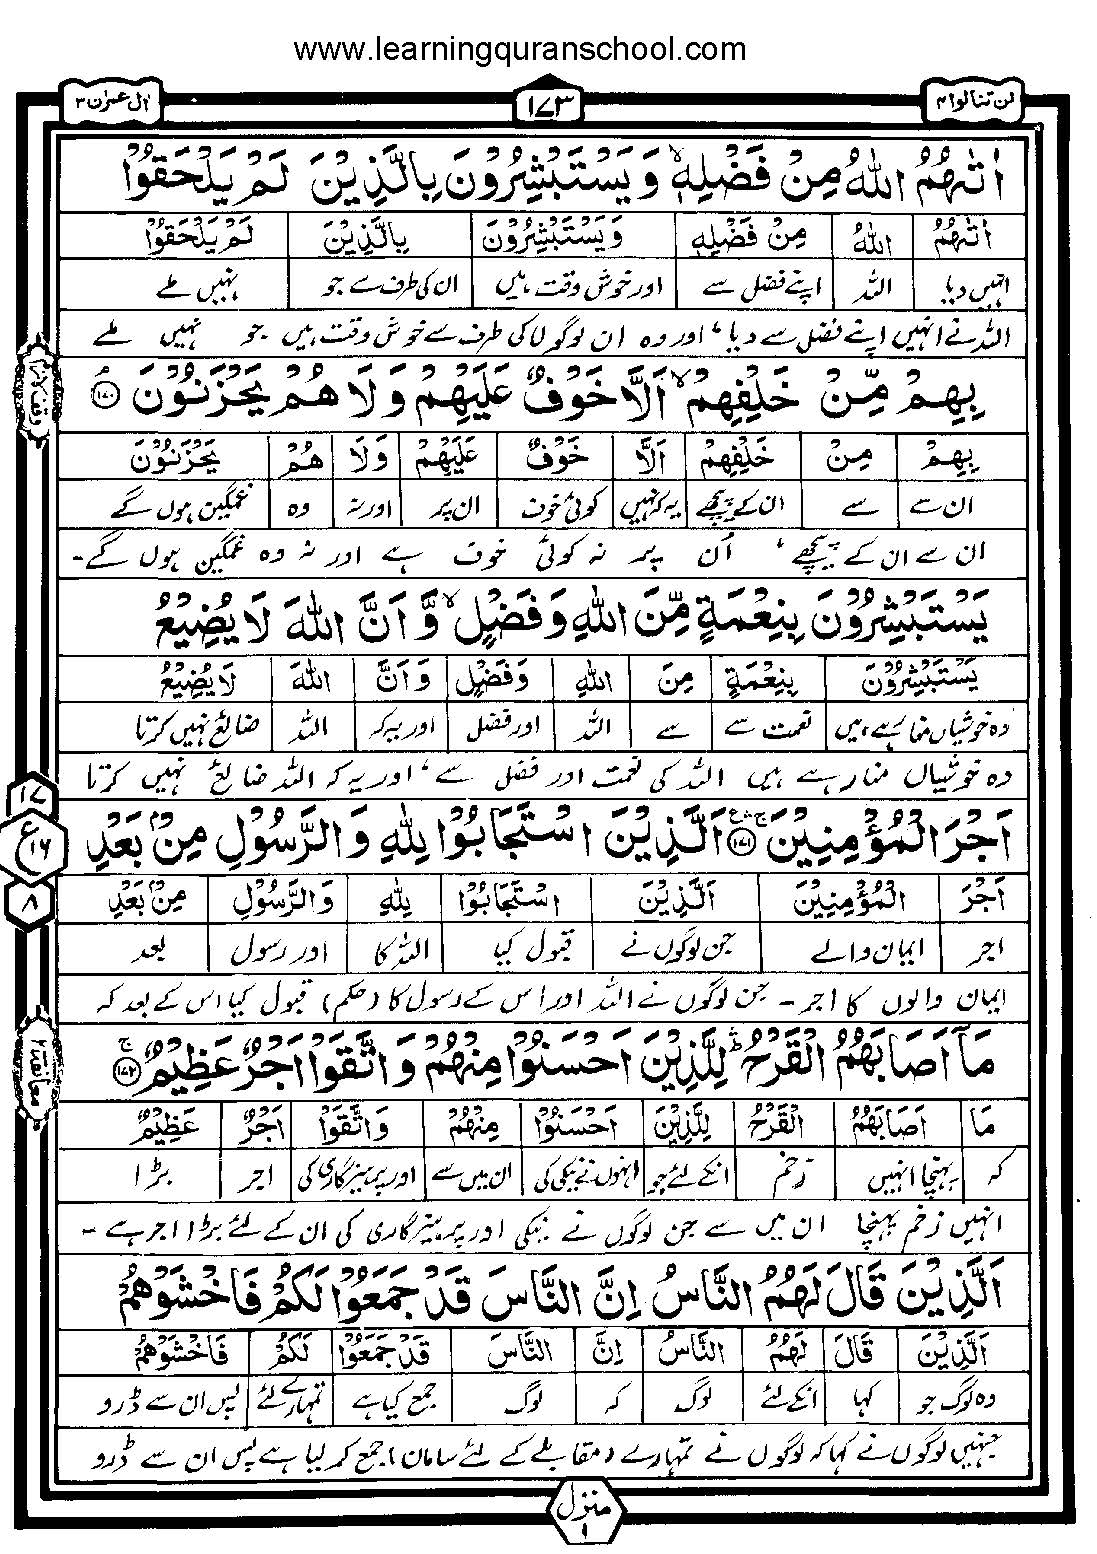 www.learningquranschool.com
لن تنالوا ۴
۱۷۳
اٰل عمرٰن ۳
اٰتٰىهُمُ اللّٰهُ مِنْ فَضْلِهٖ ۙ وَيَسْتَبْشِرُوْنَ بِالَّذِيْنَ لَمْ يَلْحَقُوْا
اٰتٰىهُمُ اللّٰهُ مِنْ فَضْلِهٖ وَيَسْتَبْشِرُوْنَ بِالَّذِيْنَ لَمْ يَلْحَقُوْا
انہیں دیا اللہ اپنے فضل سے اور خوش وقت ہیں ان کی طرف سے جو نہیں ملے
اللہ نے انہیں اپنے فضل سے دیا، اور وہ ان لوگوں کی طرف سے خوش وقت ہیں جو نہیں ملے
بِهِمْ مِّنْ خَلْفِهِمْ ۙ اَلَّا خَوْفٌ عَلَيْهِمْ وَلَا هُمْ يَحْزَنُوْنَ ۝۱۷۰ۘ
بِهِمْ مِنْ خَلْفِهِمْ اَلَّا خَوْفٌ عَلَيْهِمْ وَلَا هُمْ يَحْزَنُوْنَ
ان سے سے ان کے پیچھے یہ کہ نہیں کوئی خوف ان پر اور نہ وہ غمگین ہوں گے
ان سے ان کے پیچھے، اُن پر نہ کوئی خوف ہے اور نہ وہ غمگین ہوں گے۔
يَسْتَبْشِرُوْنَ بِنِعْمَةٍ مِّنَ اللّٰهِ وَفَضْلٍ ۙ وَّاَنَّ اللّٰهَ لَا يُضِيْعُ
يَسْتَبْشِرُوْنَ بِنِعْمَةٍ مِنَ اللّٰهِ وَفَضْلٍ وَاَنَّ اللّٰهَ لَا يُضِيْعُ
وہ خوشیاں منا رہے ہیں نعمت سے سے اللہ اور فضل اور یہ کہ اللہ ضائع نہیں کرتا
وہ خوشیاں منا رہے ہیں اللہ کی نعمت اور فضل سے، اور یہ کہ اللہ ضائع نہیں کرتا
۱۷
ع ۱۶
۸
اَجْرَ الْمُؤْمِنِيْنَ ۝۱۷۱ اَلَّذِيْنَ اسْتَجَابُوْا لِلّٰهِ وَالرَّسُوْلِ مِنْۢ بَعْدِ
اَجْرَ الْمُؤْمِنِيْنَ اَلَّذِيْنَ اسْتَجَابُوْا لِلّٰهِ وَالرَّسُوْلِ مِنْۢ بَعْدِ
اجر ایمان والے جن لوگوں نے قبول کیا اللہ کا اور رسول بعد
ایمان والوں کا اجر۔ جن لوگوں نے اللہ اور اس کے رسول کا (حکم) قبول کیا اس کے بعد کہ
معانقة ۲
مَاۤ اَصَابَهُمُ الْقَرْحُ ۛؕ لِلَّذِيْنَ اَحْسَنُوْا مِنْهُمْ وَاتَّقَوْا اَجْرٌ عَظِيْمٌ ۝۱۷۲ۚ
مَا اَصَابَهُمُ الْقَرْحُ لِلَّذِيْنَ اَحْسَنُوْا مِنْهُمْ وَاتَّقَوْا اَجْرٌ عَظِيْمٌ
کہ پہنچا انہیں زخم انکے لئے جو انہوں نے نیکی کی ان میں سے اور پرہیزگاری کی اجر بڑا
انہیں زخم پہنچا ان میں سے جن لوگوں نے نیکی اور پرہیزگاری کی ان کے لئے بڑا اجر ہے۔
اَلَّذِيْنَ قَالَ لَهُمُ النَّاسُ اِنَّ النَّاسَ قَدْ جَمَعُوْا لَكُمْ فَاخْشَوْهُمْ
اَلَّذِيْنَ قَالَ لَهُمُ النَّاسُ اِنَّ النَّاسَ قَدْ جَمَعُوْا لَكُمْ فَاخْشَوْهُمْ
وہ لوگ جو کہا انکے لئے لوگ کہ لوگ جمع کیا ہے تمہارے لئے پس ان سے ڈرو
جنہیں لوگوں نے کہا کہ لوگوں نے تمہارے (مقابلے کے لئے سامان) جمع کر لیا ہے پس ان سے ڈرو
منزل ۱